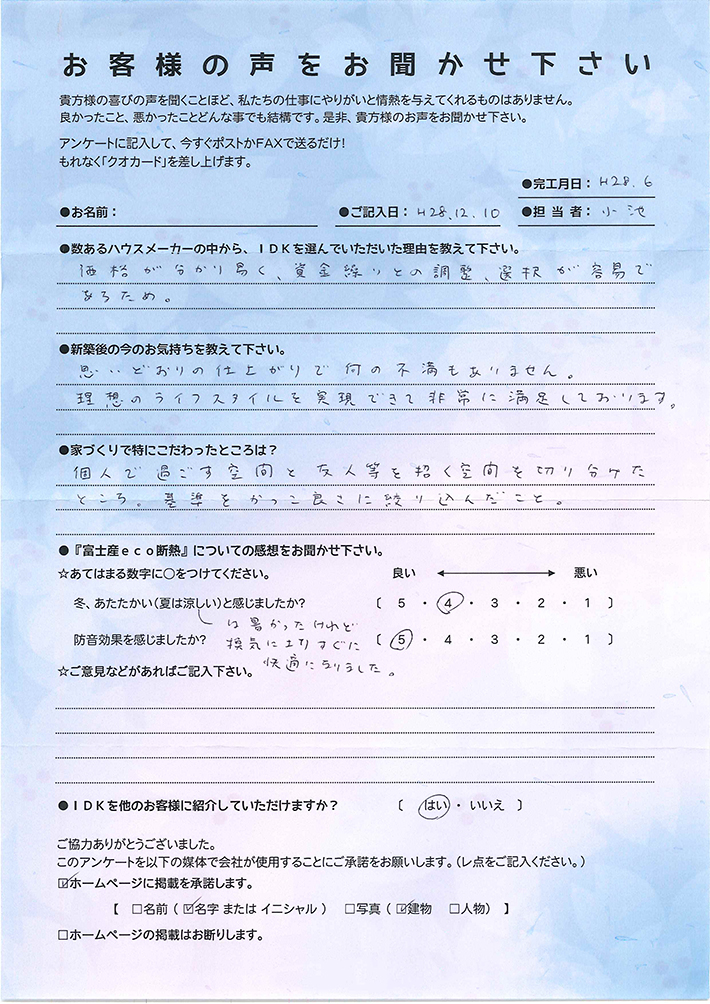 お客様の声をお聞かせ下さい
貴方様の喜びの声を聞くことほど、私たちの仕事にやりがいと情熱を与えてくれるものはありません。
良かったこと、悪かったことどんな事でも結構です。是非、貴方様のお声をお聞かせ下さい。
アンケートに記入して、今すぐポストかFAXで送るだけ!
もれなく「クオカード」を差し上げます。
●完工月日: H28.6
●お名前: ●ご記入日: H28.12.10 ●担当者: 小池
●数あるハウスメーカーの中から、IDKを選んでいただいた理由を教えて下さい。
価格が分かり易く、資金繰りとの調整、選択が容易で
あるため。
●新築後の今のお気持ちを教えて下さい。
思いどおりの仕上がりで何の不満もありません。
理想のライフスタイルを実現できて非常に満足しております。
●家づくりで特にこだわったところは?
個人で過ごす空間と友人等を招く空間を切り分けた
ところ。基準をかっこ良さに絞り込んだこと。
●『富士産eco断熱』についての感想をお聞かせ下さい。
☆あてはまる数字に○をつけてください。 良い 悪い
冬、あたたかい(夏は涼しい)と感じましたか? 〔 5 ・ 4 ・ 3 ・ 2 ・ 1 〕
は暑かったけれど
防音効果を感じましたか? 換気によりすぐに 〔 5 ・ 4 ・ 3 ・ 2 ・ 1 〕
☆ご意見などがあればご記入下さい。 快適になりました。
●IDKを他のお客様に紹介していただけますか? 〔 はい ・ いいえ 〕
ご協力ありがとうございました。
このアンケートを以下の媒体で会社が使用することにご承諾をお願いします。(レ点をご記入ください。)
☑ホームページに掲載を承諾します。
【 □名前 ( ☑名字 または イニシャル ) □写真 ( ☑建物 □人物) 】
□ホームページの掲載はお断りします。